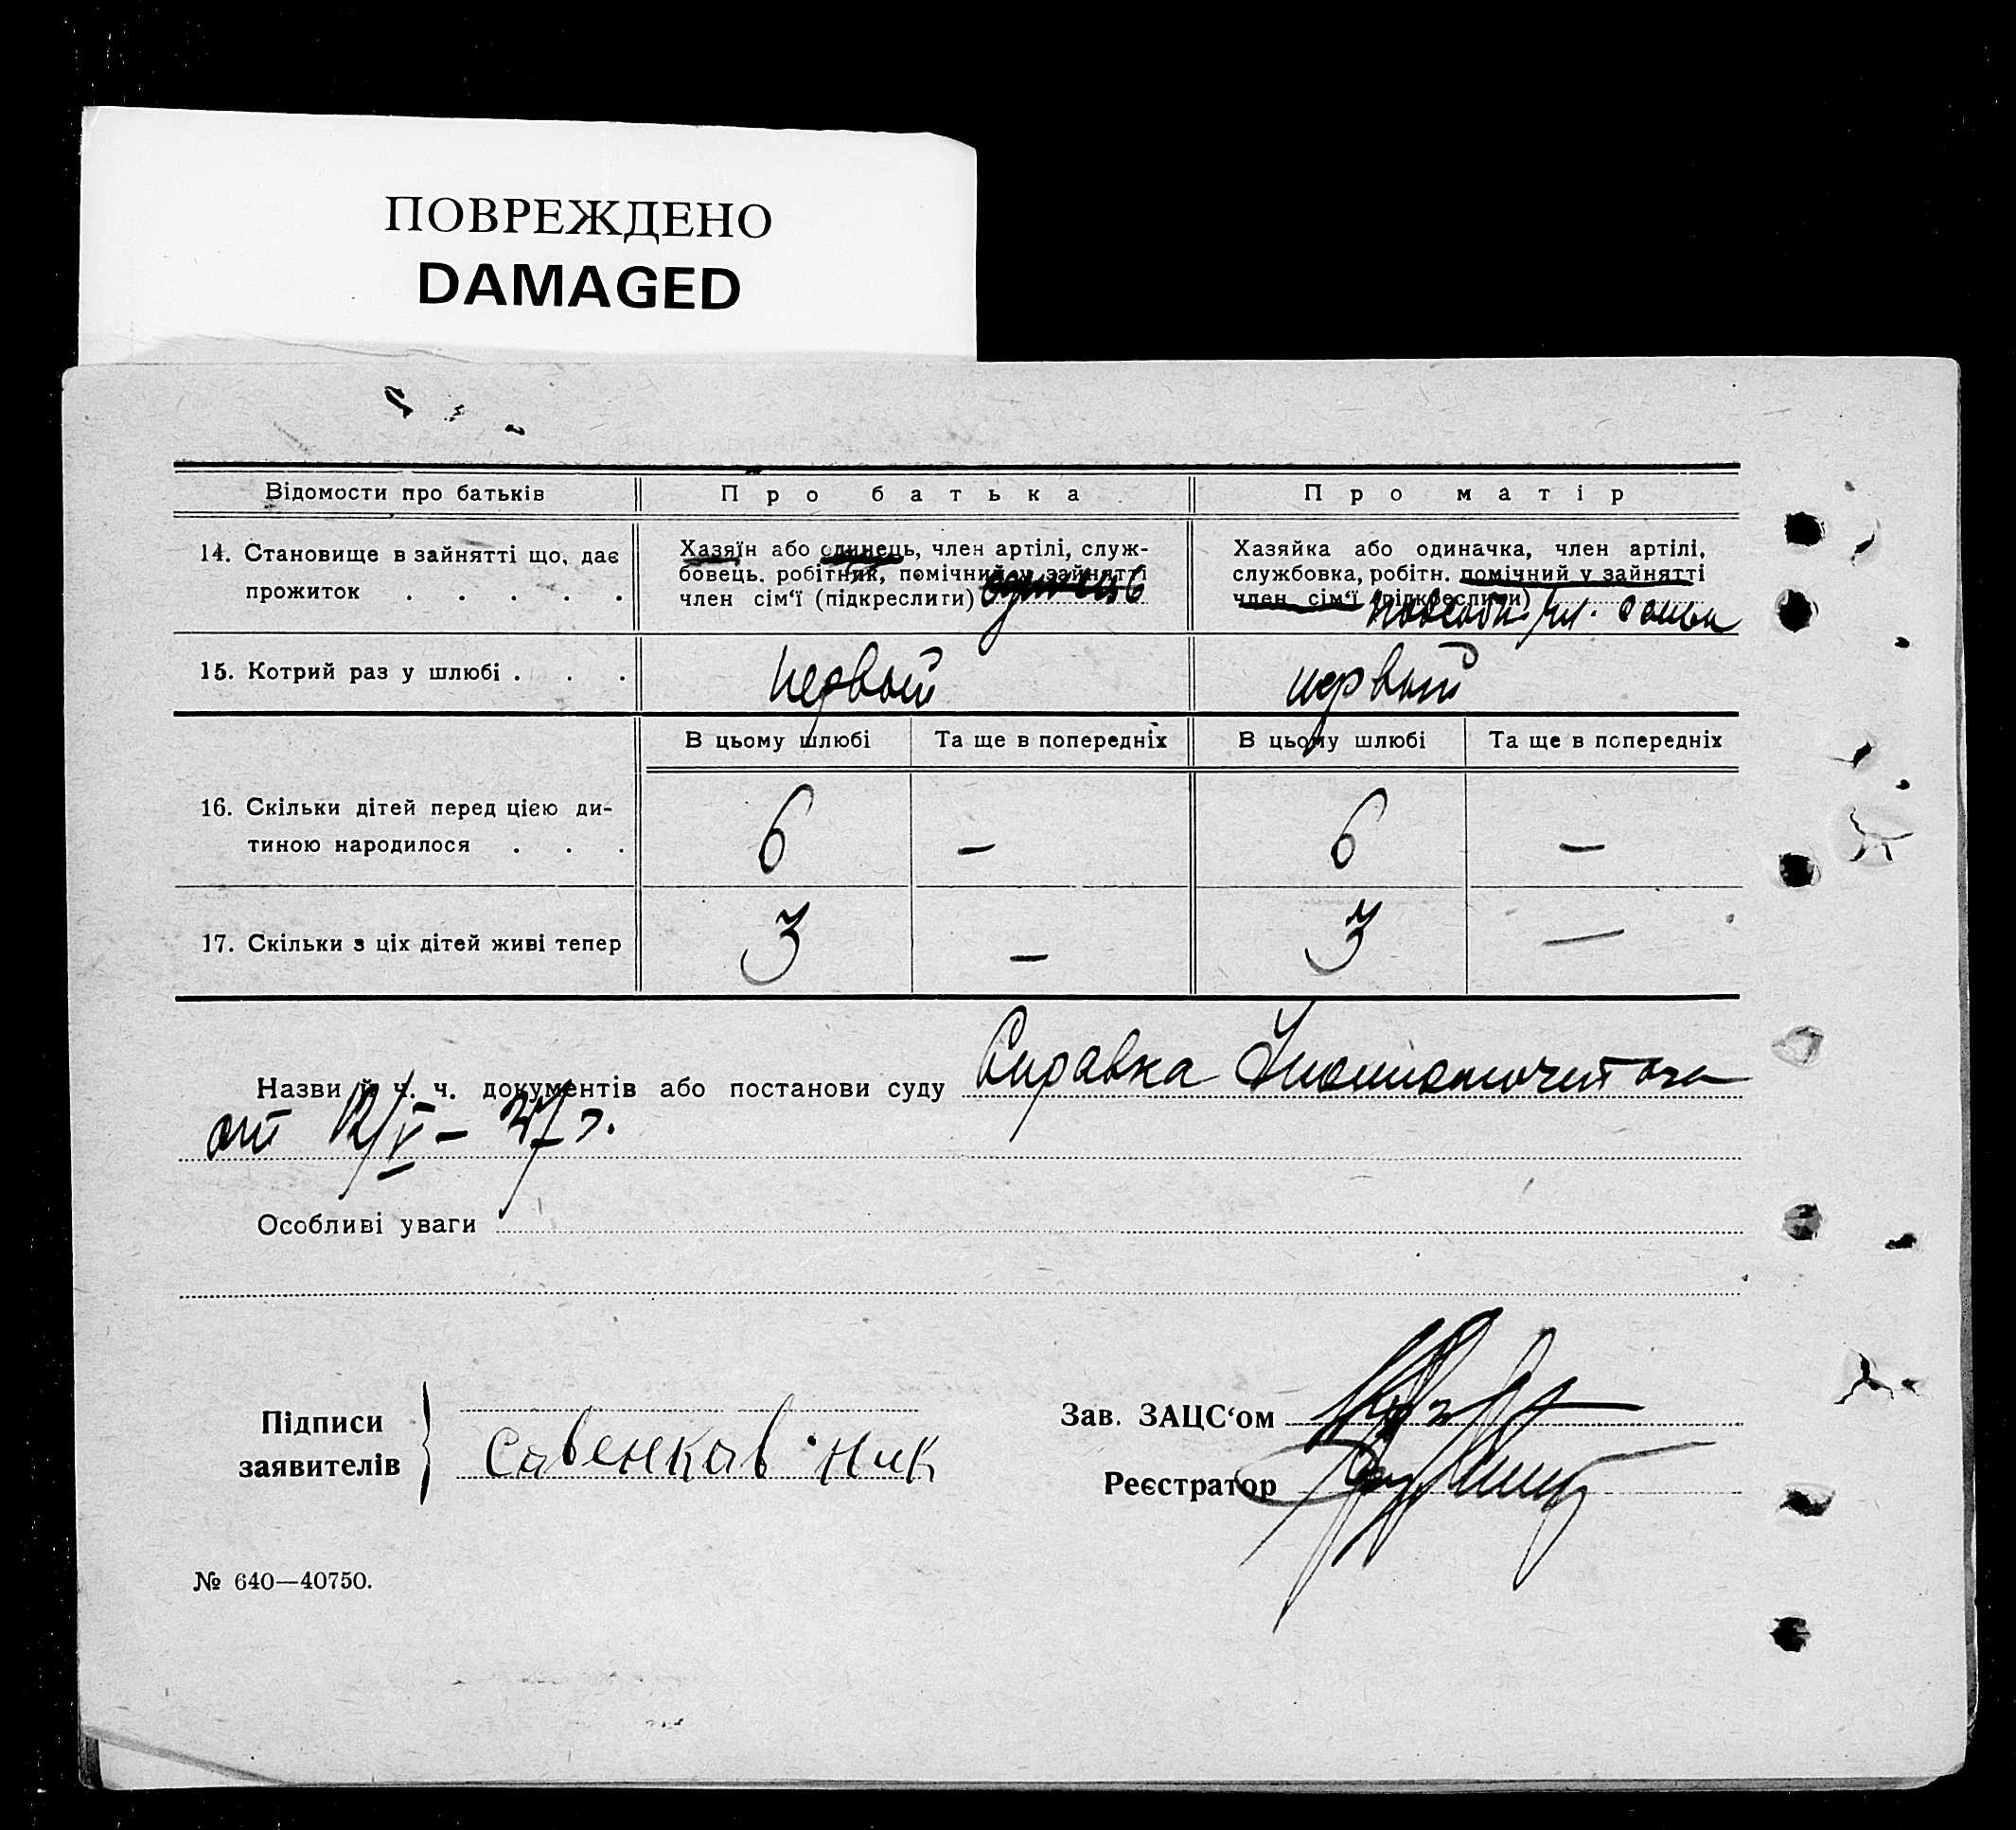 ПОВРЕЖДЕНО
DAMAGED
Відомости про батьків
Про батька
Про матір
14. Становище в зайнятті що, дає
прожиток . . . . .
Хазяїн або одинець, член артілі, служ-
бовець. робітник, помічний у зайнятті
член сім'ї (підкреслиги)
Хазяйка або одиначка, член артілі,
службовка, робітн. помічний у зайнятті
член сім'ї (підкреслити)
15. Котрий раз у шлюбі . . .
первый
первый
В цьому шлюбі
Та ще в попередніх
В цьому шлюбі
Та ще в попередніх
16. Скільки дітей перед цією ди-
тиною народилося . . .
6
—
6
—
17. Скільки з ціх дітей живі тепер
3
—
3
—
Назви й ч. ч. документів або постанови суду Справка
от 12/V – 27 г.
Особливі уваги
Підписи
заявителів
Савенков Ник
Зав. ЗАЦС'ом
Реєстратор
№ 640—40750.